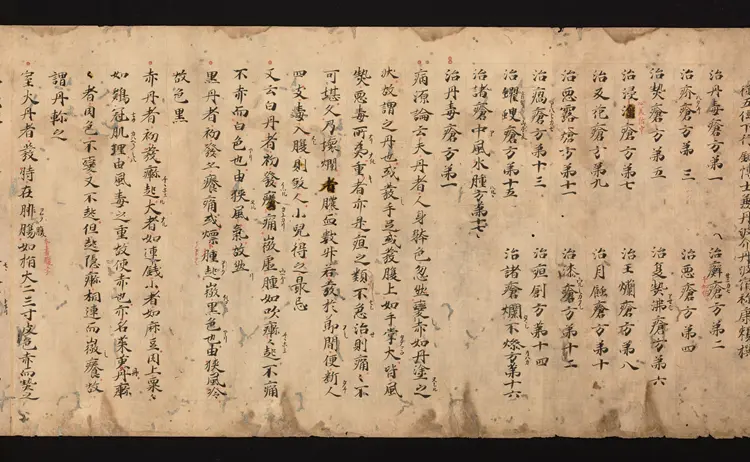 治丹毒瘡方第一 治癬瘡方第二
治疥瘡方第三 治惡瘡方第四
治熱瘡方第五 治夏熱沸瘡方第六
治浸瘡方第七 治王爛瘡方第八
治反花瘡方第九 治月蝕瘡方第十
治惡露瘡方第十一 治漆瘡方第十二
治瘑瘡方第十三 治疽刟方第十四
治蠼螋瘡方第十五 治諸瘡爛不燥方第十六
治諸瘡中風水腫方第十七
治丹毒瘡方第一
病源論云夫丹者人身躰色忽然變赤如丹塗之
狀故謂之丹也或發手足或發腹上如手掌大皆風
熱惡毒所為重者亦是疽之類不急治則痛〻不
可堪久乃壞爛者膿血數升若發於節間便斷人
四支毒入腹則殺人小兒得之最忌
又云白丹者初發痛嶽虛腫如吹癮〻起不痛
不赤而白色也由挾風氣故然
黑丹者初發亦癢痛或㷔腫起微黑色也由挾風冷
故色黑
赤丹者初發癮起大者如連錢小者如麻豆肉上粟〻
如鷄冠肌理由風毒之重故使赤也亦名茱萸丹
〻者肉色不變又不熱但起隱癮相連而微癢故
謂丹軫之
室火丹者發時在腓腸如指大二三寸皮色赤而熱之